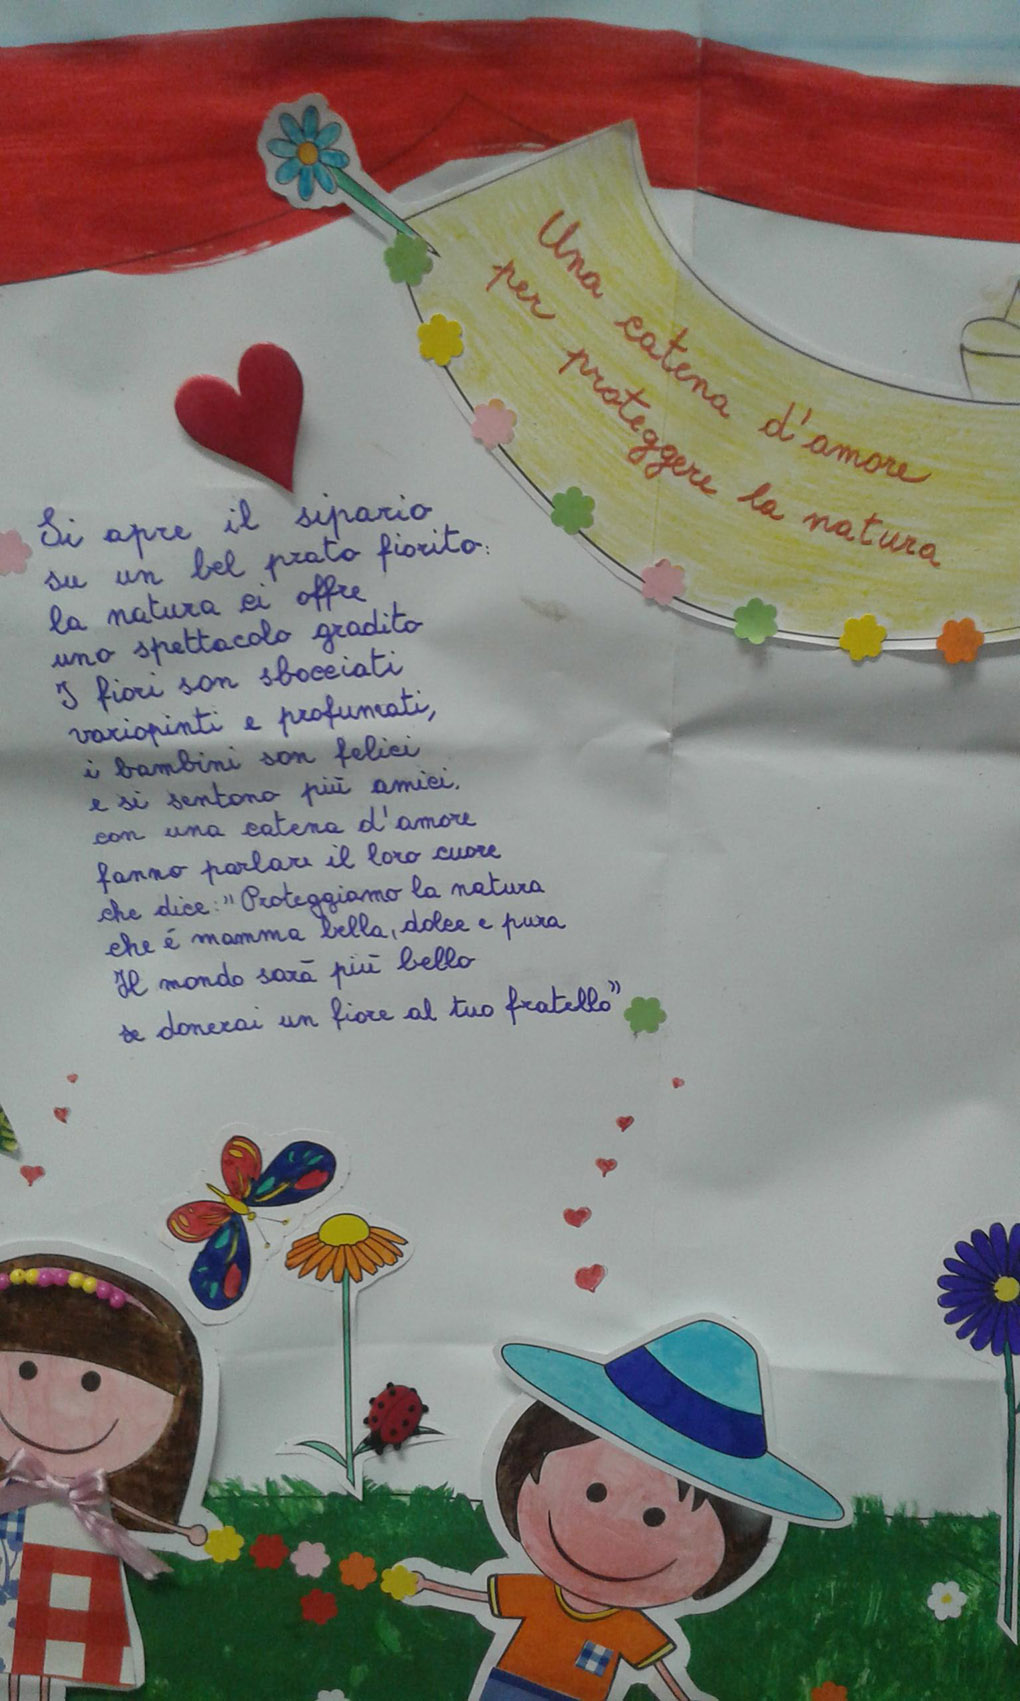 Una catena d'amore
per proteggere la natura
Si apre il sipario
su un bel prato fiorito:
la natura ci offre
uno spettacolo gradito
I fiori son sbocciati
variopinti e profumati,
i bambini son felici
e si sentono più amici.
con una catena d'amore
fanno parlare il loro cuore
che dice: "Proteggiamo la natura
che é mamma bella, dolce e pura
Il mondo sarà più bello
se donerai un fiore al tuo fratello"